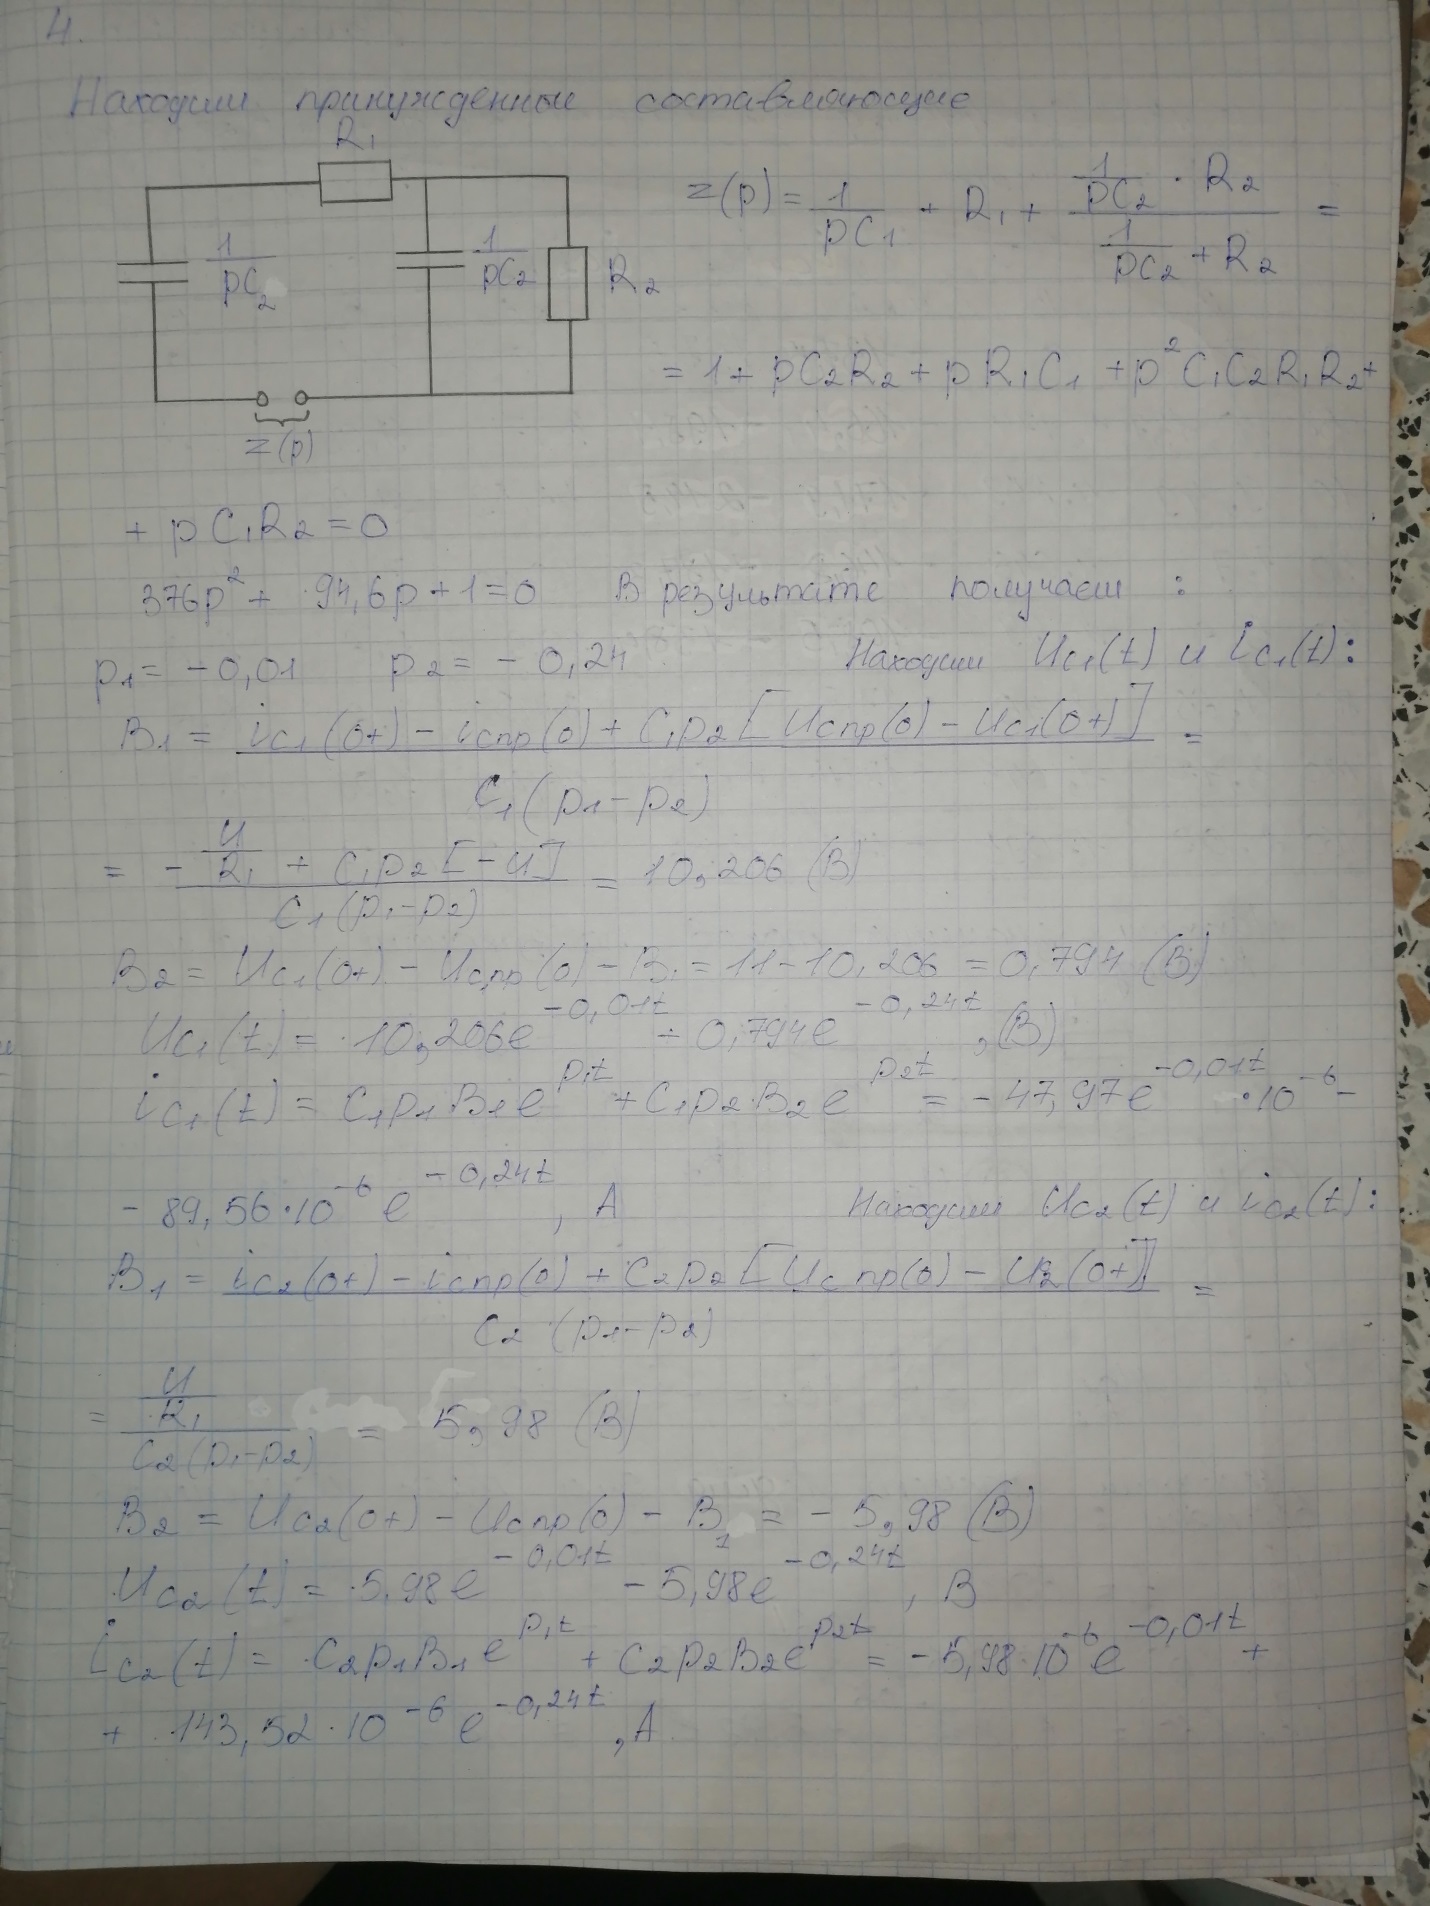 4.
Находим принужденные составляющие
R₁
1/(pC₂)
1/(pC₂)
R₂
Z(p)
Z(p) = 1/(pC₁) + R₁ + (1/(pC₂) · R₂)/(1/(pC₂) + R₂) =
= 1 + pC₂R₂ + pR₁C₁ + p²C₁C₂R₁R₂ +
+ pC₁R₂ = 0
376p² + 94,6p + 1 = 0 В результате получаем :
p₁ = - 0,01 p₂ = - 0,24 Находим Uc₁(t) и ic₁(t):
B₁ = (ic₁(0+) - icпр(0) + C₁p₂[Ucпр(0) - Uc₁(0+)])/(C₁(p₁-p₂)) =
= (-U/R₁ + C₁p₂[-U])/(C₁(p₁-p₂)) = 10,206 (В)
B₂ = Uc₁(0+) - Ucпр(0) - B₁ = 11 - 10,206 = 0,794 (В)
Uc₁(t) = 10,206e^(-0,01t) + 0,794e^(-0,24t), (В)
ic₁(t) = C₁p₁B₁e^(p₁t) + C₁p₂B₂e^(p₂t) = - 47,97e^(-0,01t) · 10⁻⁶ -
- 89,56·10⁻⁶ e^(-0,24t), А Находим Uc₂(t) и ic₂(t):
B₁ = (ic₂(0+) - icпр(0) + C₂p₂[Ucпр(0) - U₂(0+)])/(C₂(p₁-p₂)) =
= (U/R₁)/(C₂(p₁-p₂)) = 5,98 (В)
B₂ = Uc₂(0+) - Ucпр(0) - B₁ = - 5,98 (В)
Uc₂(t) = 5,98e^(-0,01t) - 5,98e^(-0,24t), В
ic₂(t) = C₂p₁B₁e^(p₁t) + C₂p₂B₂e^(p₂t) = - 5,98·10⁻⁶e^(-0,01t) +
+ 143,52·10⁻⁶e^(-0,24t), А